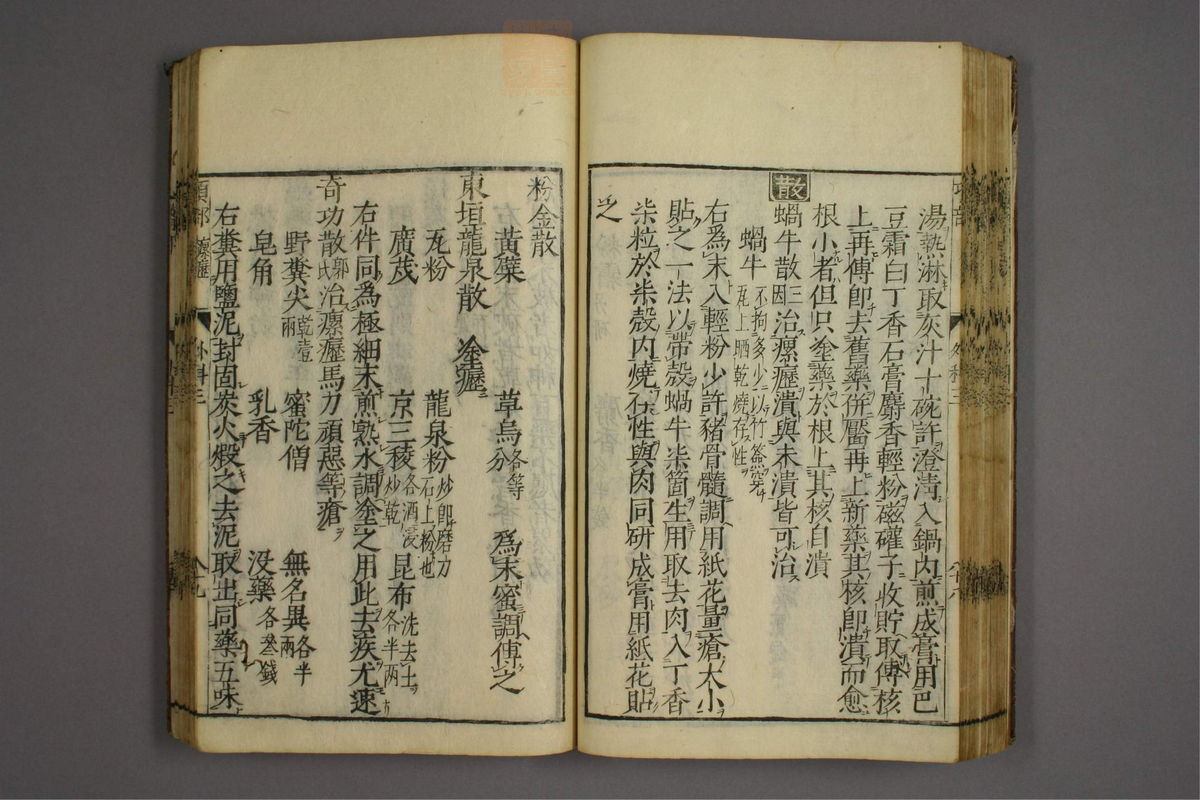 湯熱淋取灰汁十碗許澄淸入鍋内煎成膏用巴
豆霜白丁香石膏麝香輕粉磁確子收貯取傅核
上再傅卽去舊藥併靨再上新藥其核卽潰而愈
根小者但只塗藥於根上其核自潰
散
蝸牛散三因治瘰癧潰與未潰皆可治
蝸牛不拘多少以竹簽穿瓦上晒乾燒存性
右爲末入輕粉少許猪骨髓調用紙花量瘡大小
貼之一法以帶殼蝸牛柒箇生用取去肉入丁香
柒粒於柒殼内燒存性與肉同研成膏用紙花貼
之
粉金散
右黄蘗 草烏各等分 爲末蜜調傅之
東垣龍泉散 塗癧
瓦粉 龍泉粉炒卽磨刀石上粉也
廣茂 京三稜各酒浸炒乾 昆布洗去土各半两
右件同爲極細末煎熟水調塗之用此去疾尤速
奇功散郭氏治瘰癧馬刀頑惡等瘡
野糞尖乾壹兩 蜜陀僧 無名異各半兩
皂角 乳香 沒藥各叄錢
右糞用鹽泥封固炭火煅之去泥取出同藥五味
項部 瘰癧 外科三 八十九